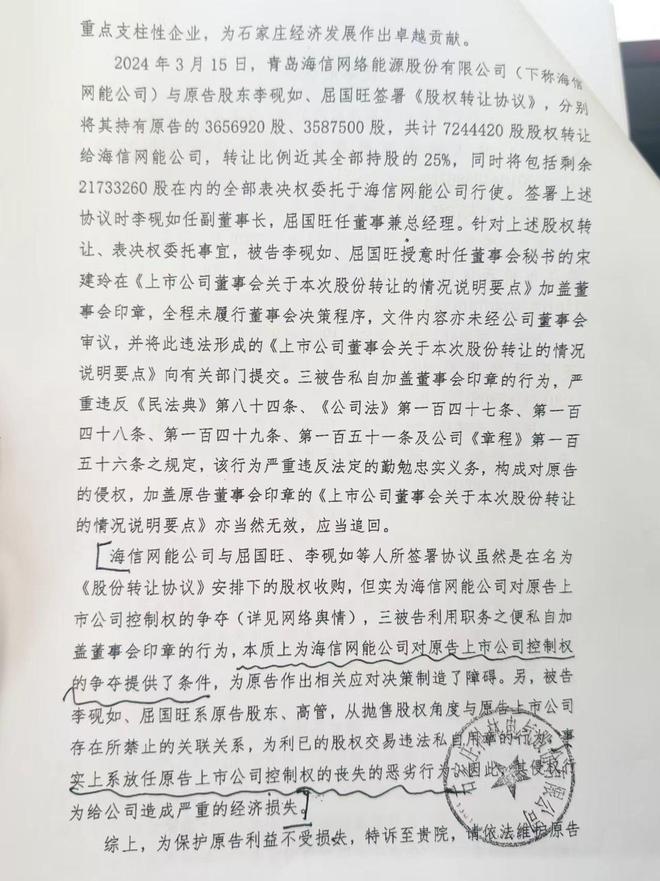 重点支柱性企业，为石家庄经济发展作出卓越贡献。
2024年3月15日，青岛海信网络能源股份有限公司（下称海信
网能公司）与原告股东李砚如、屈国旺签署《股权转让协议》，分别
将其持有原告的3656920股、3587500股，共计7244420股股权转让
给海信网能公司，转让比例近其全部持股的25%，同时将包括剩余
21733260股在内的全部表决权委托于海信网能公司行使。签署上述
协议时李砚如任副董事长，屈国旺任董事兼总经理。针对上述股权转
让、表决权委托事宜，被告李砚如、屈国旺授意时任董事会秘书的宋
建玲在《上市公司董事会关于本次股份转让的情况说明要点》加盖董
事会印章，全程未履行董事会决策程序，文件内容亦未经公司董事会
审议，并将此违法形成的《上市公司董事会关于本次股份转让的情况
说明要点》向有关部门提交。三被告私自加盖董事会印章的行为，严
重违反《民法典》第八十四条、《公司法》第一百四十七条、第一百
四十八条、第一百四十九条、第一百五十一条及公司《章程》第一百
五十六条之规定，该行为严重违反法定的勤勉忠实义务，构成对原告
的侵权，加盖原告董事会印章的《上市公司董事会关于本次股份转让
的情况说明要点》亦当然无效，应当追回。
海信网能公司与屈国旺、李砚如等人所签署协议虽然是在名为
《股份转让协议》安排下的股权收购，但实为海信网能公司对原告上
市公司控制权的争夺（详见网络舆情），三被告利用职务之便私自加
盖董事会印章的行为，本质上为海信网能公司对原告上市公司控制权
的争夺提供了条件，为原告作出相关应对决策制造了障碍。另，被告
李砚如、屈国旺系原告股东、高管，从抛售股权角度与原告上市公司
存在所禁止的关联关系，为利已的股权交易违法私自用章的行为，事
实上系放任原告上市公司控制权的丧失的恶劣行为。因此，其侵权行
为给公司造成严重的经济损失。
综上，为保护原告利益不受损失，特诉至贵院，请依法维护原告